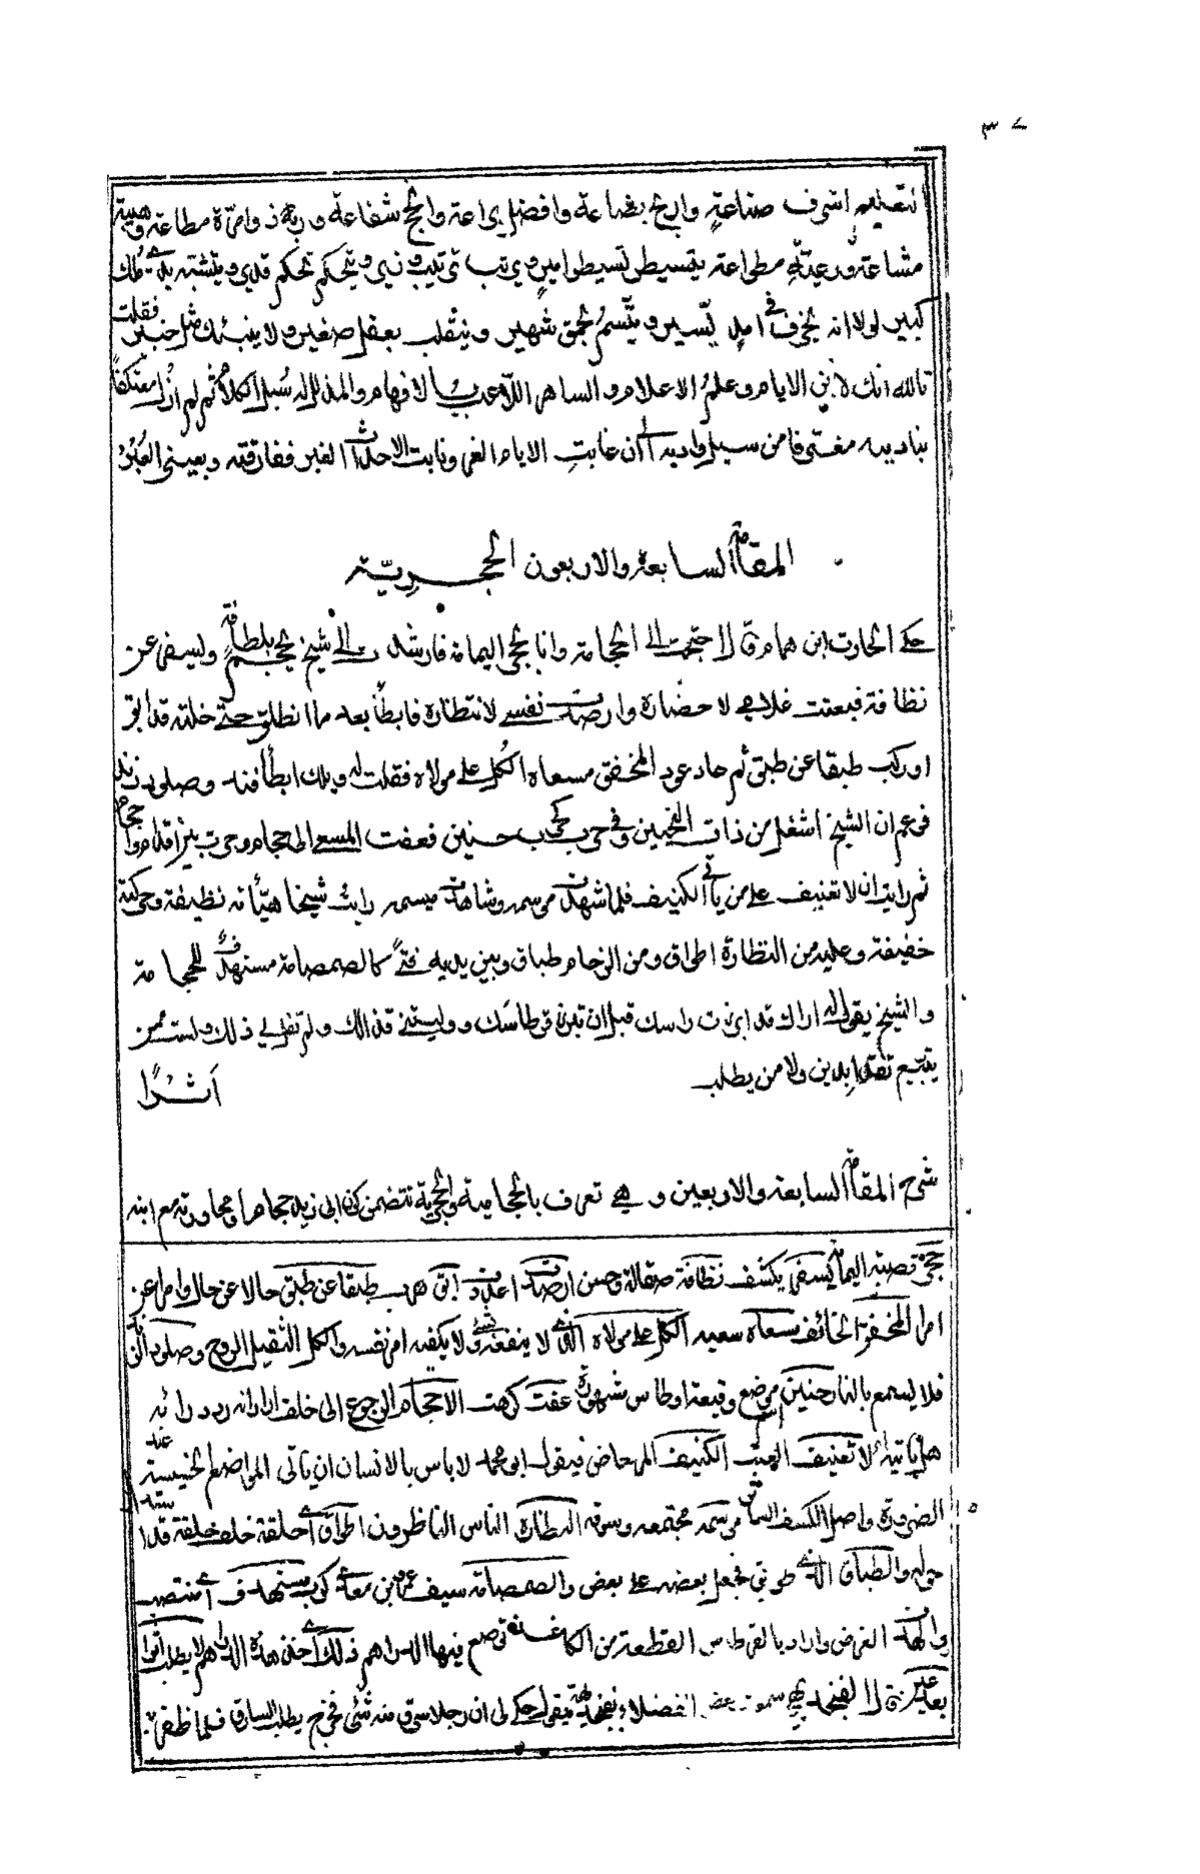 ٣٧
التعليم اشرف صناعةٍ واربح بضاعة وافضل براعة وانجح شفاعة وربه ذو امرة مطاعة وهيبة
مشاعة ورعيّة مطواعة يتسيطر تسيطر امير ويرتب ترتيب وزير ويتحكم تحكم قدير ويتشبه بذي ملك
كبير لولا انه يخرف في امد يسير ويتّسم بحمق شهير ويتقلب بعقل صغير ولا ينبئك مثل خبير فقلت
تالله انك لابن الايام وعلم الاعلام والساحر اللاعب بالافهام والمذلل له سبل الكلام ثم لم ازل معتكفًا
بناديه مغترفا من سيل واديه الى ان غابت الايام الغر ونابت الاحداث الغبر ففارقته وبعيني العُبْرُ
المقامة السابعة والاربعون الحجرية
حكى الحارث ابن همام قال احتجت الى الحجامة وانا بحجر اليمامة فارشدت الى شيخ يحجم بلطافةٍ ويسفر عن
نظافة فبعثت غلامي لاحضاره وارصدت نفسي لانتظاره فابطأ بعد ما انطلق حتى خلته قد ابق
او ركب طبقا عن طبق ثم عاد عود المخفق مسعاه الكل على مولاه فقلت له ويلك ابطأ فند وصلود زند
فزعم ان الشيخ اشغل من ذات النحيين وفي حرب كحرب حنين فعفت المسعى الى حجام وحرت بين اقدام واحجام
ثم رايت ان لا تعنيف على من ياتي الكنيف فلما شهدت موسمه وشاهدت ميسمه رايت شيخا هيأته نظيفة وحركته
خفيفة وعليه من النظارة اطواق ومن الزحام طباق وبين يديه فتًى كالصمصامة مستهدفٌ للحجامة
والشيخ يقول له اراك قد ابرزت راسك قبل ان تبرز قرطاسك ووليتني قذالك ولم تقل لي ذلك ولست ممن
يتبيع نقدًا بدين ولا من يطلب
اَثَرًا
شرح المقامة السابعة والاربعين وهي تعرف بالحجامية والحجرية تتضمن كون ابي زيد حجاما ومحاورته مع ابنه
حجر قصبة اليمامة يسفر يكشف نظافة صقالة وحسن ارصدت اعددت ابق هرب طبقا عن طبق حالا عن حال
المخفق الخائف مسعاه سعيه الكل على مولاه الذي لا ينفعه ولا يكفيه امر نفسه والكل الثقيل الروح وصلود
فلا يسمع بالنار حنين موضع وقيعة شهورة عفت كرهت الاحجام الرجوع الى خلف
لا تعنيف الكنيف المرحاض فيقول ابو محمد لا باس بالانسان ان ياتي المواضع الخسيسة عند
الضرورة واصل الكنيف الساتر موسمه مجتمعه وسوقه النظارة الناس الناظرون اطواق اي حلقة خلف حلقة
حوله والطباق الذي بعضه على بعض والصمصامة سيف عمرو بن معدي كرب مستهدف اي منتصب
والهدف الغرض واراد بالقرطاس القطعة من الكاغذ توضع فيها الدراهم
بعد عين بعض الفضلاء يقول حكي لي ان رجلا سرق منه شئ فخرج يطلب السارق فلما ظفر